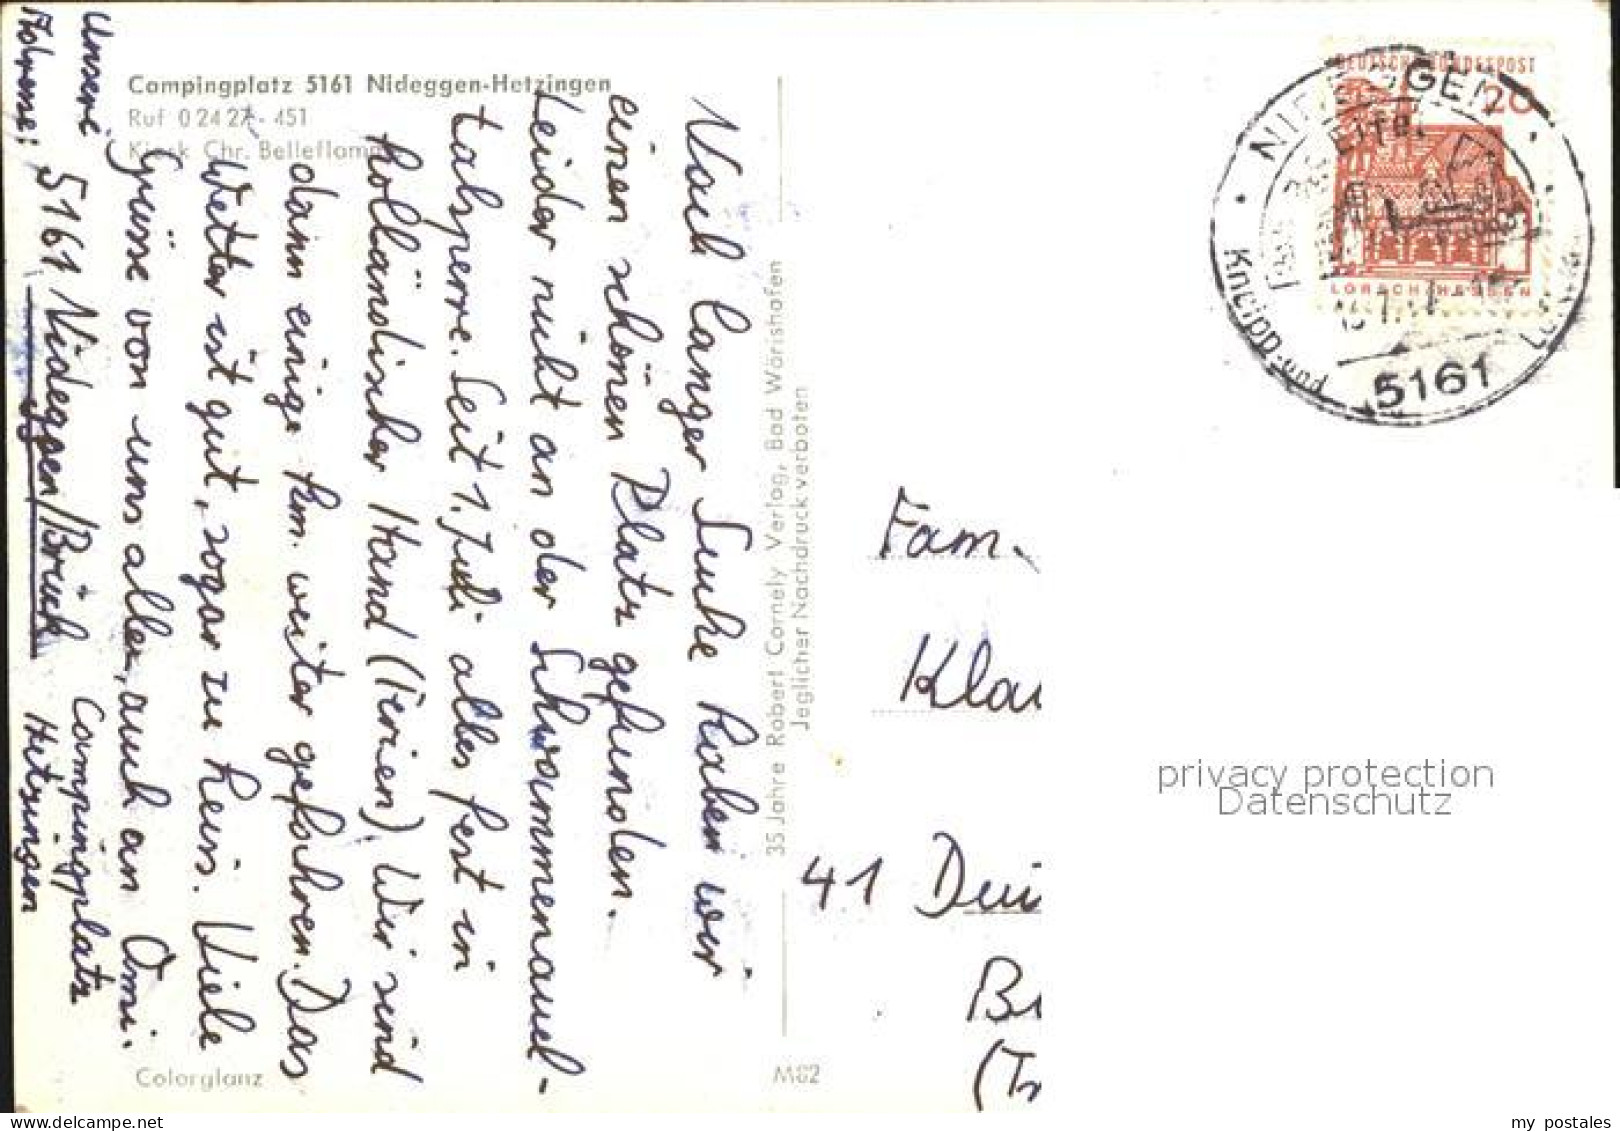 Campingplatz 5161 Nideggen-Hetzingen
Ruf 02427-451
Kiosk Chr. Belleflamme
Nach langer Suche haben wir
einen schönen Platz gefunden.
Leider nicht an der Schwammenauel-
talsperre. Seit 1. Juli alles fest in
holländischer Hand (Ferien) Wir sind
dann einige km. weiter gefahren. Das
Wetter ist gut, sogar zu heis. Viele
Grüsse von uns allen, auch an Omi.
Unsere
Adresse:
5161 Nideggen/Brück
Campingplatz
Hetzingen
35 Jahre Robert Cornely Verlag, Bad Wörishofen
Jeglicher Nachdruck verboten
Colorglanz
M82
DEUTSCHE BUNDESPOST
20
LORSCH/HESSEN
NIDEGGEN
Kneipp- und
5161
Fam.
Klau
41 Dui
B
(Tr
privacy protection
Datenschutz
my postales